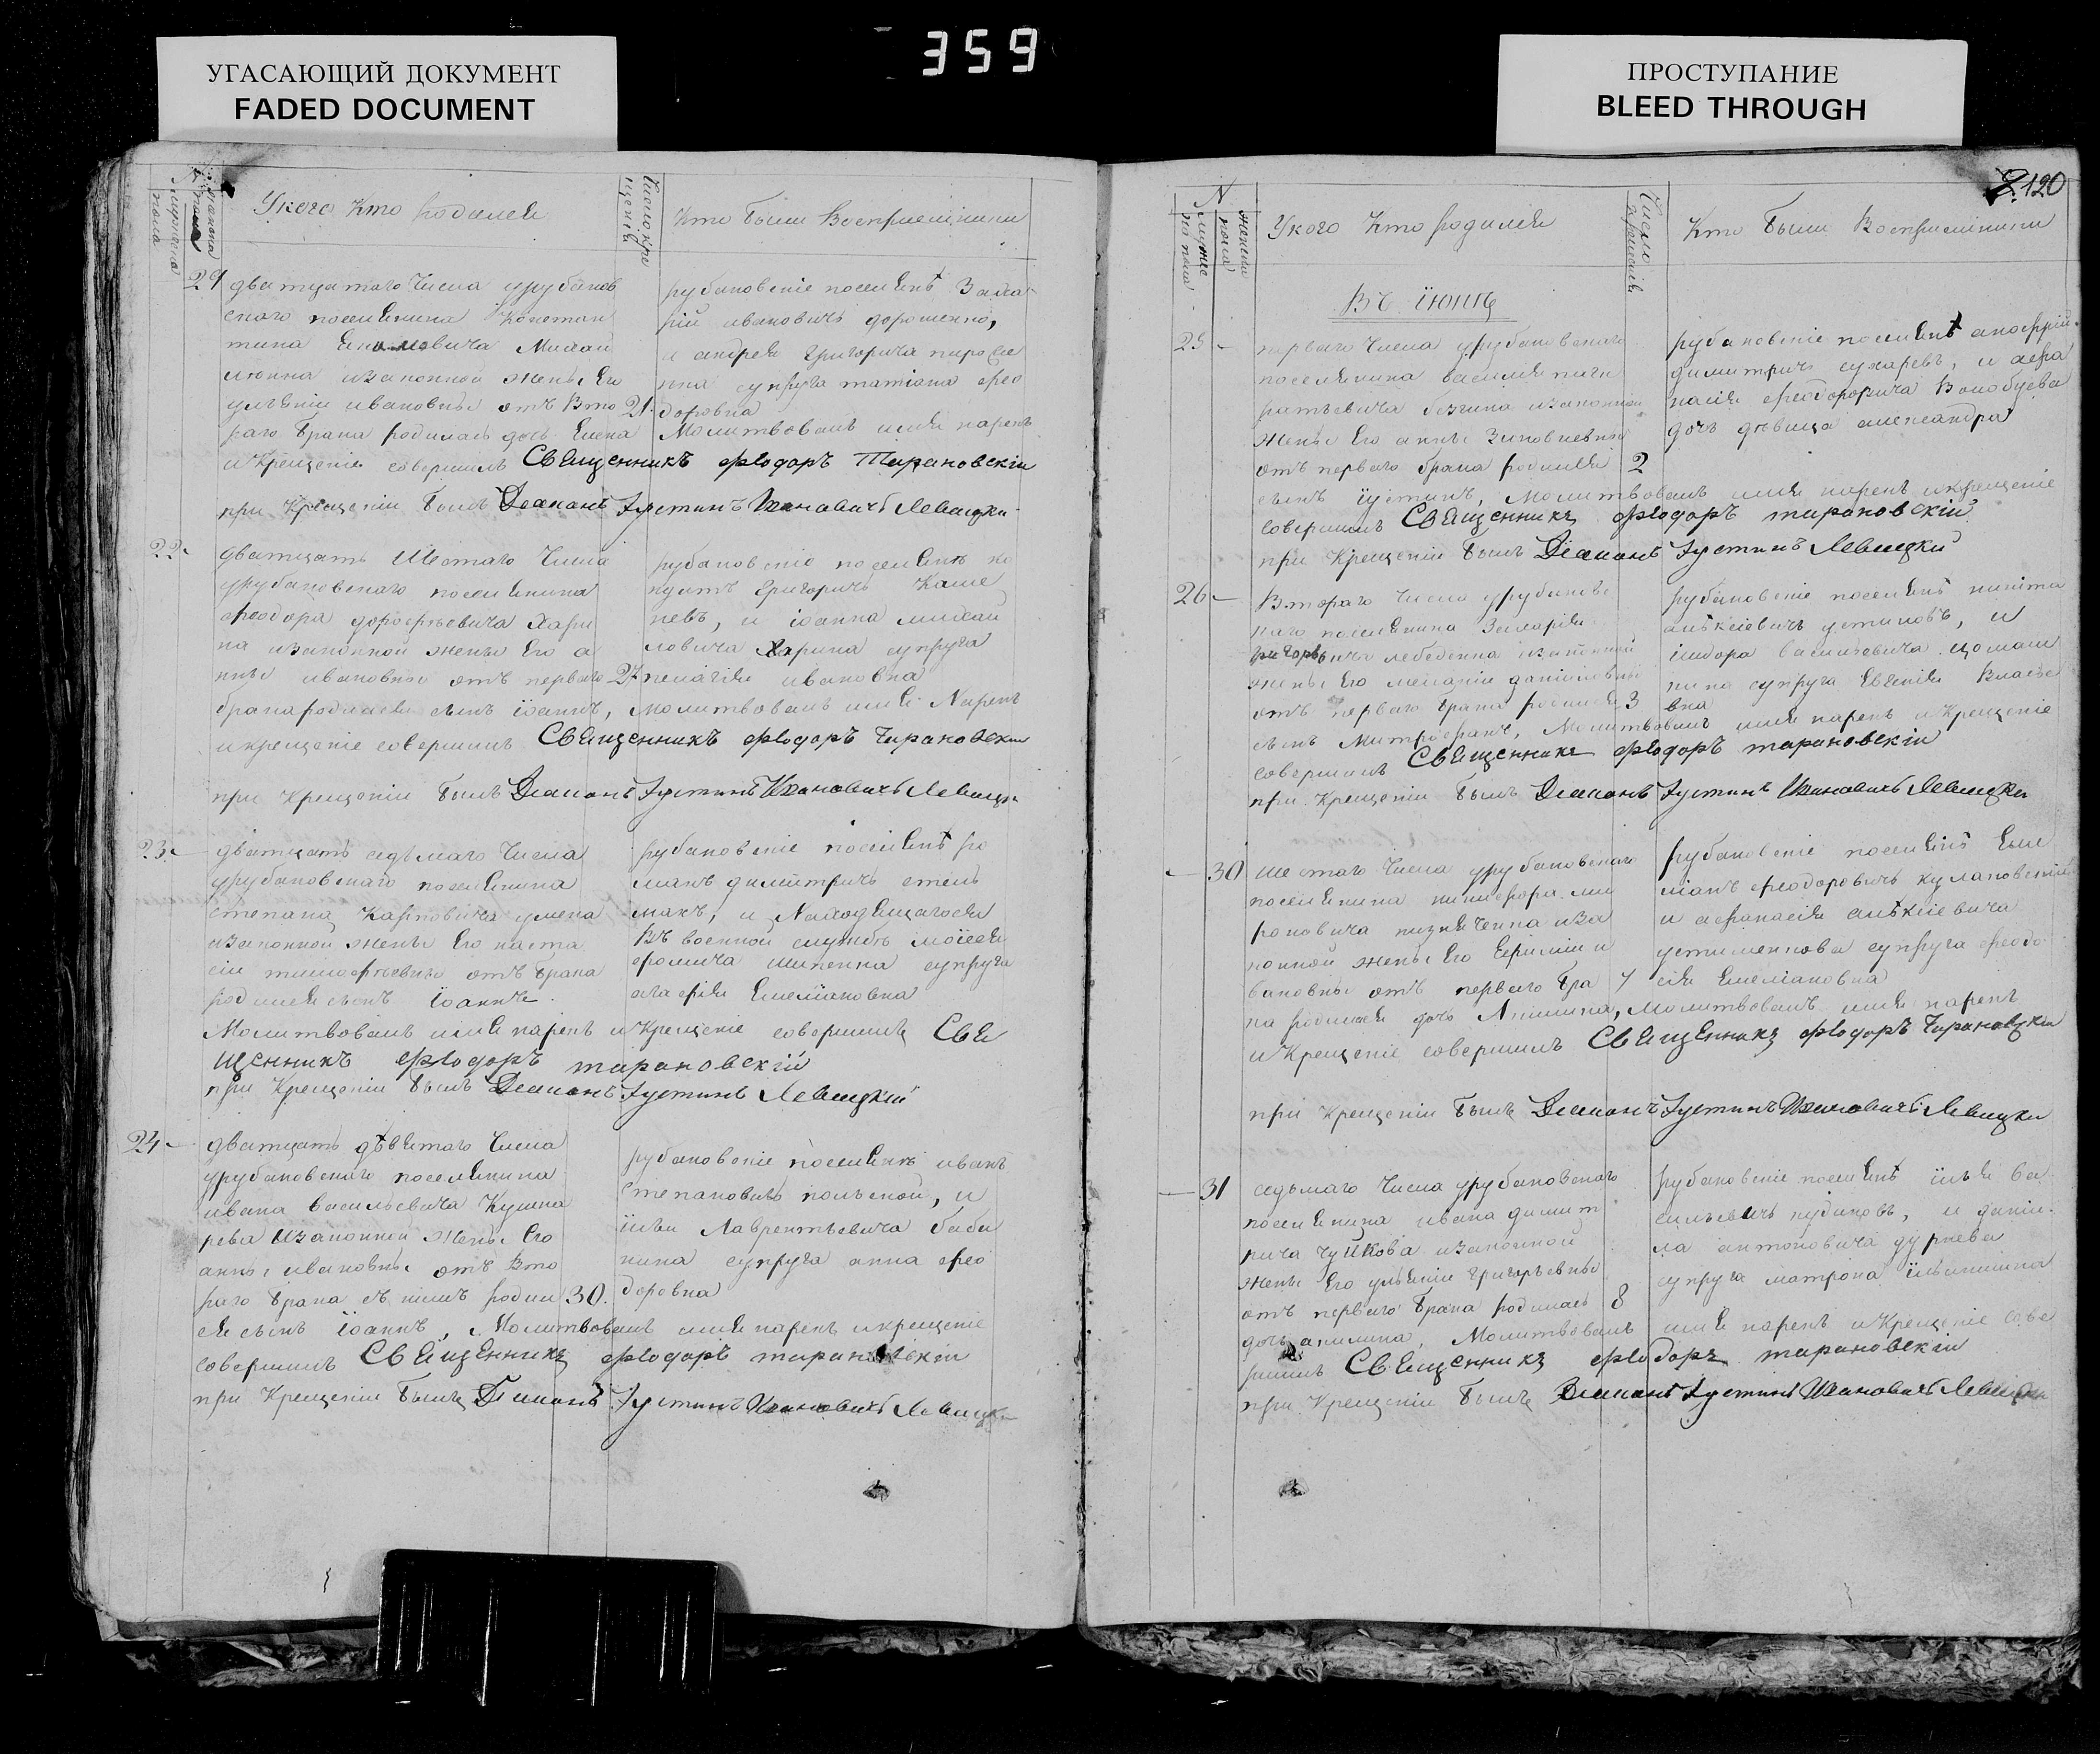 359
УГАСАЮЩИЙ ДОКУМЕНТ
FADED DOCUMENT
ПРОСТУПАНИЕ
BLEED THROUGH
120
N
женска пола
мужеска пола
Укого Кто родился
Число крещенія
Кто были Восприемники
29
дватцатого Числа урубанов
скаго поселенина Констан
тина
изаконной жены Его
ульяніи ивановны отъ Вто
раго брака родилась дочь Елена
21.
рубановскіе поселянѣ Заха
рій ивановичъ дорошенко,
и андрея Григорича
супруга татіана фео
доровна
Молитвовалъ имя нарекъ
и Крещеніе совершилъ Священникъ Фіодоръ Тарановскіи
при Крещеніи былъ Діаконъ Іустинъ Ивановичъ Левицки
22
дватцать Шестаго Числа
урубановскаго поселенина
феодора дорофѣевича Хари
на изаконной жены Его а
нны ивановны отъ перваго
27
рубановскіе поселянѣ ко
нднатъ Григоричъ Каше
невъ, и іоанна михаи
ловича Харина супруга
пелагія ивановна
брака родился сынъ іоаннъ, молитвовалъ имя Нарекъ
и крещеніе совершилъ Священникъ Фіодоръ Тарановскіи
при Крещеніи былъ Діаконъ Іустинъ Ивановичъ Левицки
23.
дватцать седьмаго Числа
урубановскаго поселенина
степана Карповича
изаконной жены Его наста
сіи тимофѣевны отъ брака
родился сынъ іоаннъ.
рубановскіе поселянѣ ро
манъ димитричъ стель
махъ, и Находящагося
Въ военной службѣ моісея
супруга
агафія Емеліановна
Молитвовалъ имя нарекъ и Крещеніе совершилъ Свя
щенникъ Фіодоръ тарановскій
при Крещеніи былъ Діаконъ Іустинъ Левицкій
24
дватцать дѣвятаго Числа
урубановскаго поселенина
ивана васильевича Кушна
рева изаконной жены Его
анны ивановны отъ Вто
раго брака съ нимъ роди
30.
рубановскіе поселянѣ иванъ
Степановичъ польской, и
ильи Лаврентьевича баби
нина супруга анна фео
доровна
ся сынъ іоаннъ, Молитвовалъ имя нарекъ и крещеніе
совершилъ Священникъ Фіодоръ тарановскіи
при Крещеніи былъ Діаконъ Іустинъ Ивановичъ Левицки
N
мужеска пола
женска пола
Укого Кто родился
Число крещенія
Кто были Восприемники
Въ іюнѣ
25
перваго Числа урубановскаго
поселенина василія
изаконной
жены Его анны Зиновиевны
отъ перваго брака родился
2
рубановскіе поселянѣ
димитричъ сухаревъ, и афа
насія феодоровича Воробуева
дочь дѣвица александра
сынъ іустинъ, Молитвовалъ имя нарекъ и крещеніе
совершилъ Священникъ Фіодоръ тарановскій
при Крещеніи былъ Діаконъ Іустинъ Левицкій
26
Втораго Числа урубановс
каго поселенина Захарія
григорьевича лебеденка изаконной
жены Его меланіи даніиловны
отъ перваго брака родился
3
рубановскіе поселянѣ никита
алѣксіевичъ устиновъ, и
исидора васильевича
супруга Евгенія Власье
вна
сынъ Митрофанъ, Молитвовалъ имя нарекъ и Крещеніе
совершилъ Священникъ Фіодоръ тарановскіи
при Крещеніи былъ Діаконъ Іустинъ Ивановичъ Левицки
30
шестаго Числа урубановскаго
поселенина никифора ми
роновича изза
конной жены Его
вановны отъ перваго бра
7
рубановскіе поселянѣ Еме
ліанъ феодоровичъ
и афанасія алѣксіевича
устименкова супруга феодо
сія Емеліановна
ка родилася дочь Акилина, Молитвовалъ имя нарекъ
и Крещеніе совершилъ Священникъ Фіодоръ Тарановскіи
при Крещеніи былъ Діаконъ Іустинъ Ивановичъ Левицки
31
седьмаго Числа урубановскаго
поселенина ивана димит
рича Чуйкова изаконной
жены Его ульяніи григорьевны
отъ перваго брака родилась
8
рубановскіе поселянѣ илья ва
сильевичъ кудиновъ, и дании
ла антоновича дурнева
супруга матрона ильинишна
дочь акилина, Молитвовалъ имя нарекъ и Крещеніе сове
ршилъ Священникъ Фіодоръ тарановскіи
при Крещеніи былъ Діаконъ Іустинъ Ивановичъ Левицки